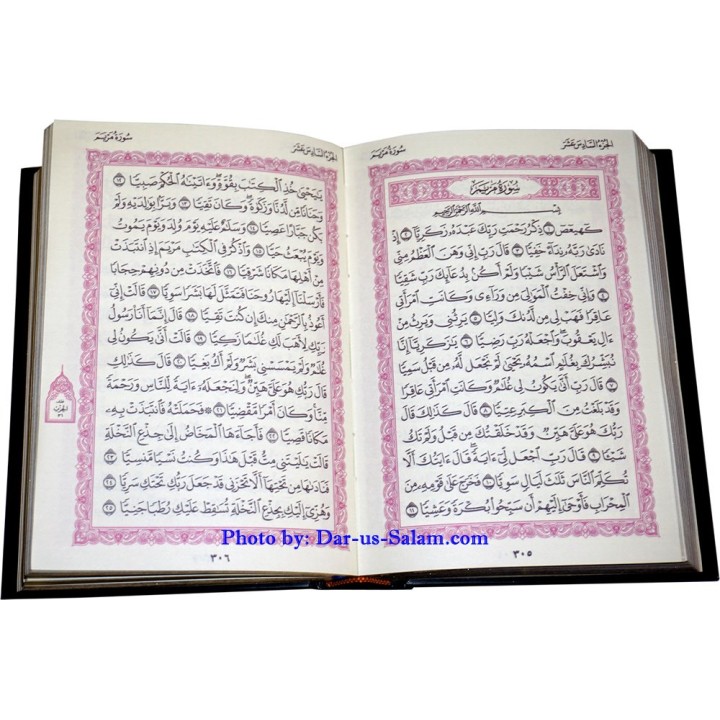 الجزء السادس عشر
سورة مريم
سُورَةُ مَرْيَمَ
بِسْمِ ٱللَّهِ ٱلرَّحْمَٰنِ ٱلرَّحِيمِ
كٓهيعٓصٓ ١ ذِكْرُ رَحْمَتِ رَبِّكَ عَبْدَهُۥ زَكَرِيَّآ ٢ إِذْ
نَادَىٰ رَبَّهُۥ نِدَآءً خَفِيًّا ٣ قَالَ رَبِّ إِنِّي وَهَنَ ٱلْعَظْمُ مِنِّي
وَٱشْتَعَلَ ٱلرَّأْسُ شَيْبًا وَلَمْ أَكُنۢ بِدُعَآئِكَ رَبِّ شَقِيًّا
٤ وَإِنِّي خِفْتُ ٱلْمَوَٰلِيَ مِن وَرَآءِي وَكَانَتِ ٱمْرَأَتِي
عَاقِرًا فَهَبْ لِي مِن لَّدُنكَ وَلِيًّا ٥ يَرِثُنِي وَيَرِثُ مِنْ
ءَالِ يَعْقُوبَ وَٱجْعَلْهُ رَبِّ رَضِيًّا ٦ يَٰزَكَرِيَّآ إِنَّا
نُبَشِّرُكَ بِغُلَٰمٍ ٱسْمُهُۥ يَحْيَىٰ لَمْ نَجْعَل لَّهُۥ مِن قَبْلُ سَمِيًّا
٧ قَالَ رَبِّ أَنَّىٰ يَكُونُ لِي غُلَٰمٌ وَكَانَتِ ٱمْرَأَتِي عَاقِرًا
وَقَدْ بَلَغْتُ مِنَ ٱلْكِبَرِ عِتِيًّا ٨ قَالَ كَذَٰلِكَ قَالَ
رَبُّكَ هُوَ عَلَيَّ هَيِّنٌ وَقَدْ خَلَقْتُكَ مِن قَبْلُ وَلَمْ تَكُ
شَيْئًا ٩ قَالَ رَبِّ ٱجْعَل لِّيٓ ءَايَةً قَالَ ءَايَتُكَ أَلَّا
تُكَلِّمَ ٱلنَّاسَ ثَلَٰثَ لَيَالٍ سَوِيًّا ١٠ فَخَرَجَ عَلَىٰ قَوْمِهِۦ مِنَ
ٱلْمِحْرَابِ فَأَوْحَىٰٓ إِلَيْهِمْ أَن سَبِّحُوا۟ بُكْرَةً وَعَشِيًّا ١١
٣٠٥
الجزء السادس عشر
سورة مريم
يَٰيَحْيَىٰ خُذِ ٱلْكِتَٰبَ بِقُوَّةٍ وَءَاتَيْنَٰهُ ٱلْحُكْمَ صَبِيًّا ١٢
وَحَنَانًا مِّن لَّدُنَّا وَزَكَوٰةً وَكَانَ تَقِيًّا ١٣ وَبَرًّۢا بِوَٰلِدَيْهِ وَلَمْ
يَكُن جَبَّارًا عَصِيًّا ١٤ وَسَلَٰمٌ عَلَيْهِ يَوْمَ وُلِدَ وَيَوْمَ يَمُوتُ
وَيَوْمَ يُبْعَثُ حَيًّا ١٥ وَٱذْكُرْ فِي ٱلْكِتَٰبِ مَرْيَمَ إِذِ ٱنتَبَذَتْ
مِنْ أَهْلِهَا مَكَانًا شَرْقِيًّا ١٦ فَٱتَّخَذَتْ مِن دُونِهِمْ حِجَابًا
فَأَرْسَلْنَآ إِلَيْهَا رُوحَنَا فَتَمَثَّلَ لَهَا بَشَرًا سَوِيًّا ١٧ قَالَتْ إِنِّيٓ
أَعُوذُ بِٱلرَّحْمَٰنِ مِنكَ إِن كُنتَ تَقِيًّا ١٨ قَالَ إِنَّمَآ أَنَا۠ رَسُولُ
رَبِّكِ لِأَهَبَ لَكِ غُلَٰمًا زَكِيًّا ١٩ قَالَتْ أَنَّىٰ يَكُونُ لِي
غُلَٰمٌ وَلَمْ يَمْسَسْنِي بَشَرٌ وَلَمْ أَكُ بَغِيًّا ٢٠ قَالَ كَذَٰلِكِ
قَالَ رَبُّكِ هُوَ عَلَيَّ هَيِّنٌ وَلِنَجْعَلَهُۥٓ ءَايَةً لِّلنَّاسِ وَرَحْمَةً
مِّنَّا وَكَانَ أَمْرًا مَّقْضِيًّا ٢١ فَحَمَلَتْهُ فَٱنتَبَذَتْ بِهِۦ
مَكَانًا قَصِيًّا ٢٢ فَأَجَآءَهَا ٱلْمَخَاضُ إِلَىٰ جِذْعِ ٱلنَّخْلَةِ
قَالَتْ يَٰلَيْتَنِي مِتُّ قَبْلَ هَٰذَا وَكُنتُ نَسْيًا مَّنسِيًّا ٢٣
فَنَادَىٰهَا مِن تَحْتِهَآ أَلَّا تَحْزَنِي قَدْ جَعَلَ رَبُّكِ تَحْتَكِ سَرِيًّا ٢٤
وَهُزِّيٓ إِلَيْكِ بِجِذْعِ ٱلنَّخْلَةِ تُسَٰقِطْ عَلَيْكِ رُطَبًا جَنِيًّا ٢٥
٣٠٦
Photo by: Dar-us-Salam.com